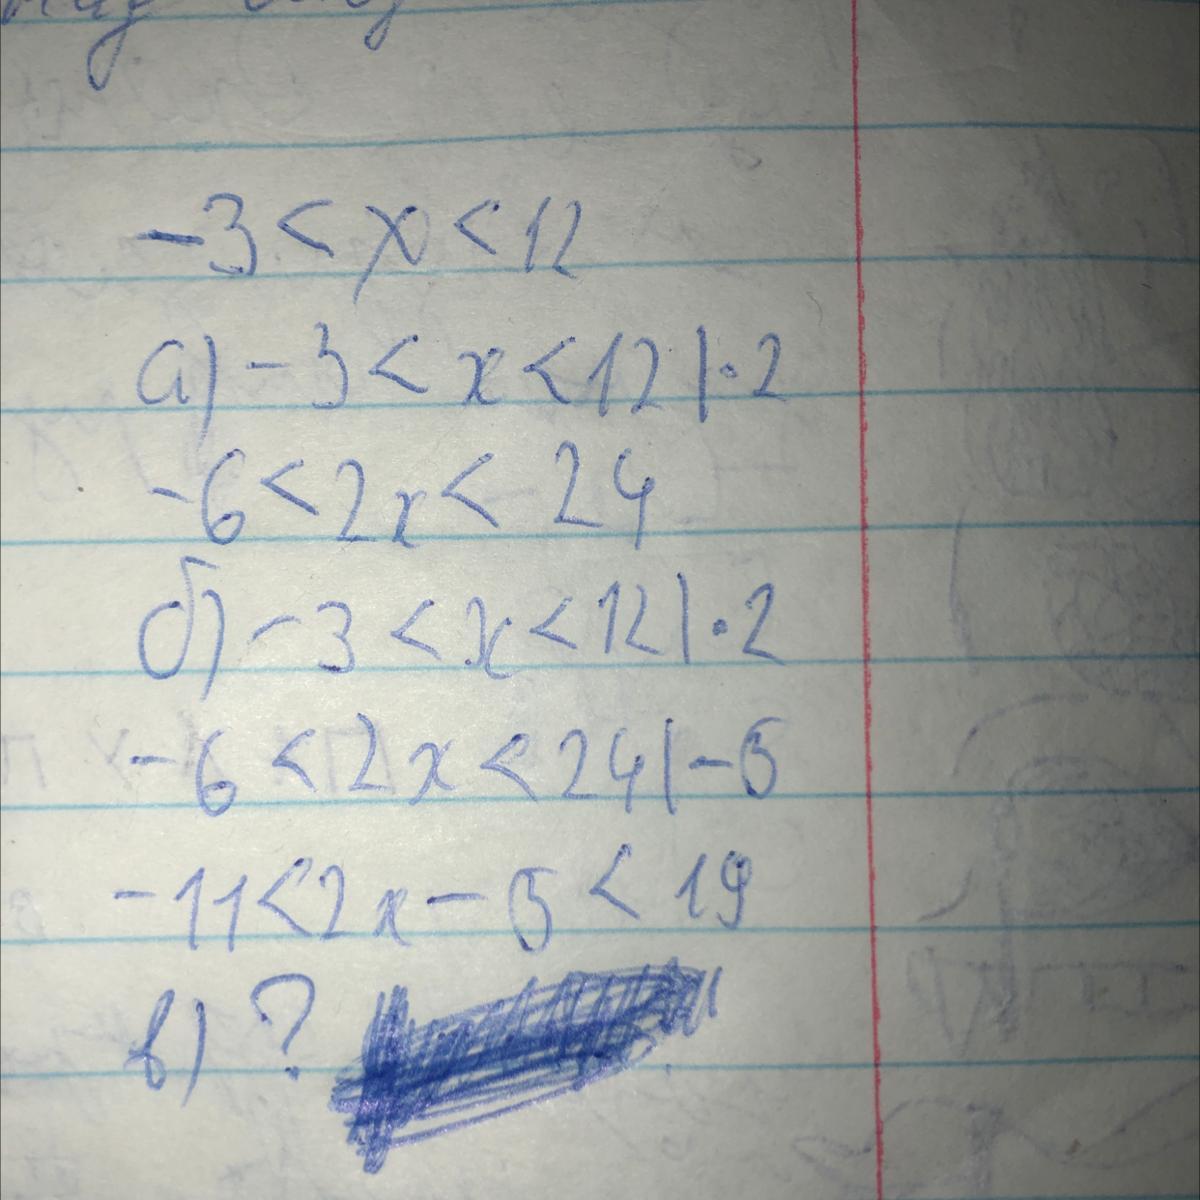 -3 < x < 12
а) -3 < x < 12 | · 2
-6 < 2x < 24
б) -3 < x < 12 | · 2
-6 < 2x < 24 | -5
-11 < 2x - 5 < 19
в) ?